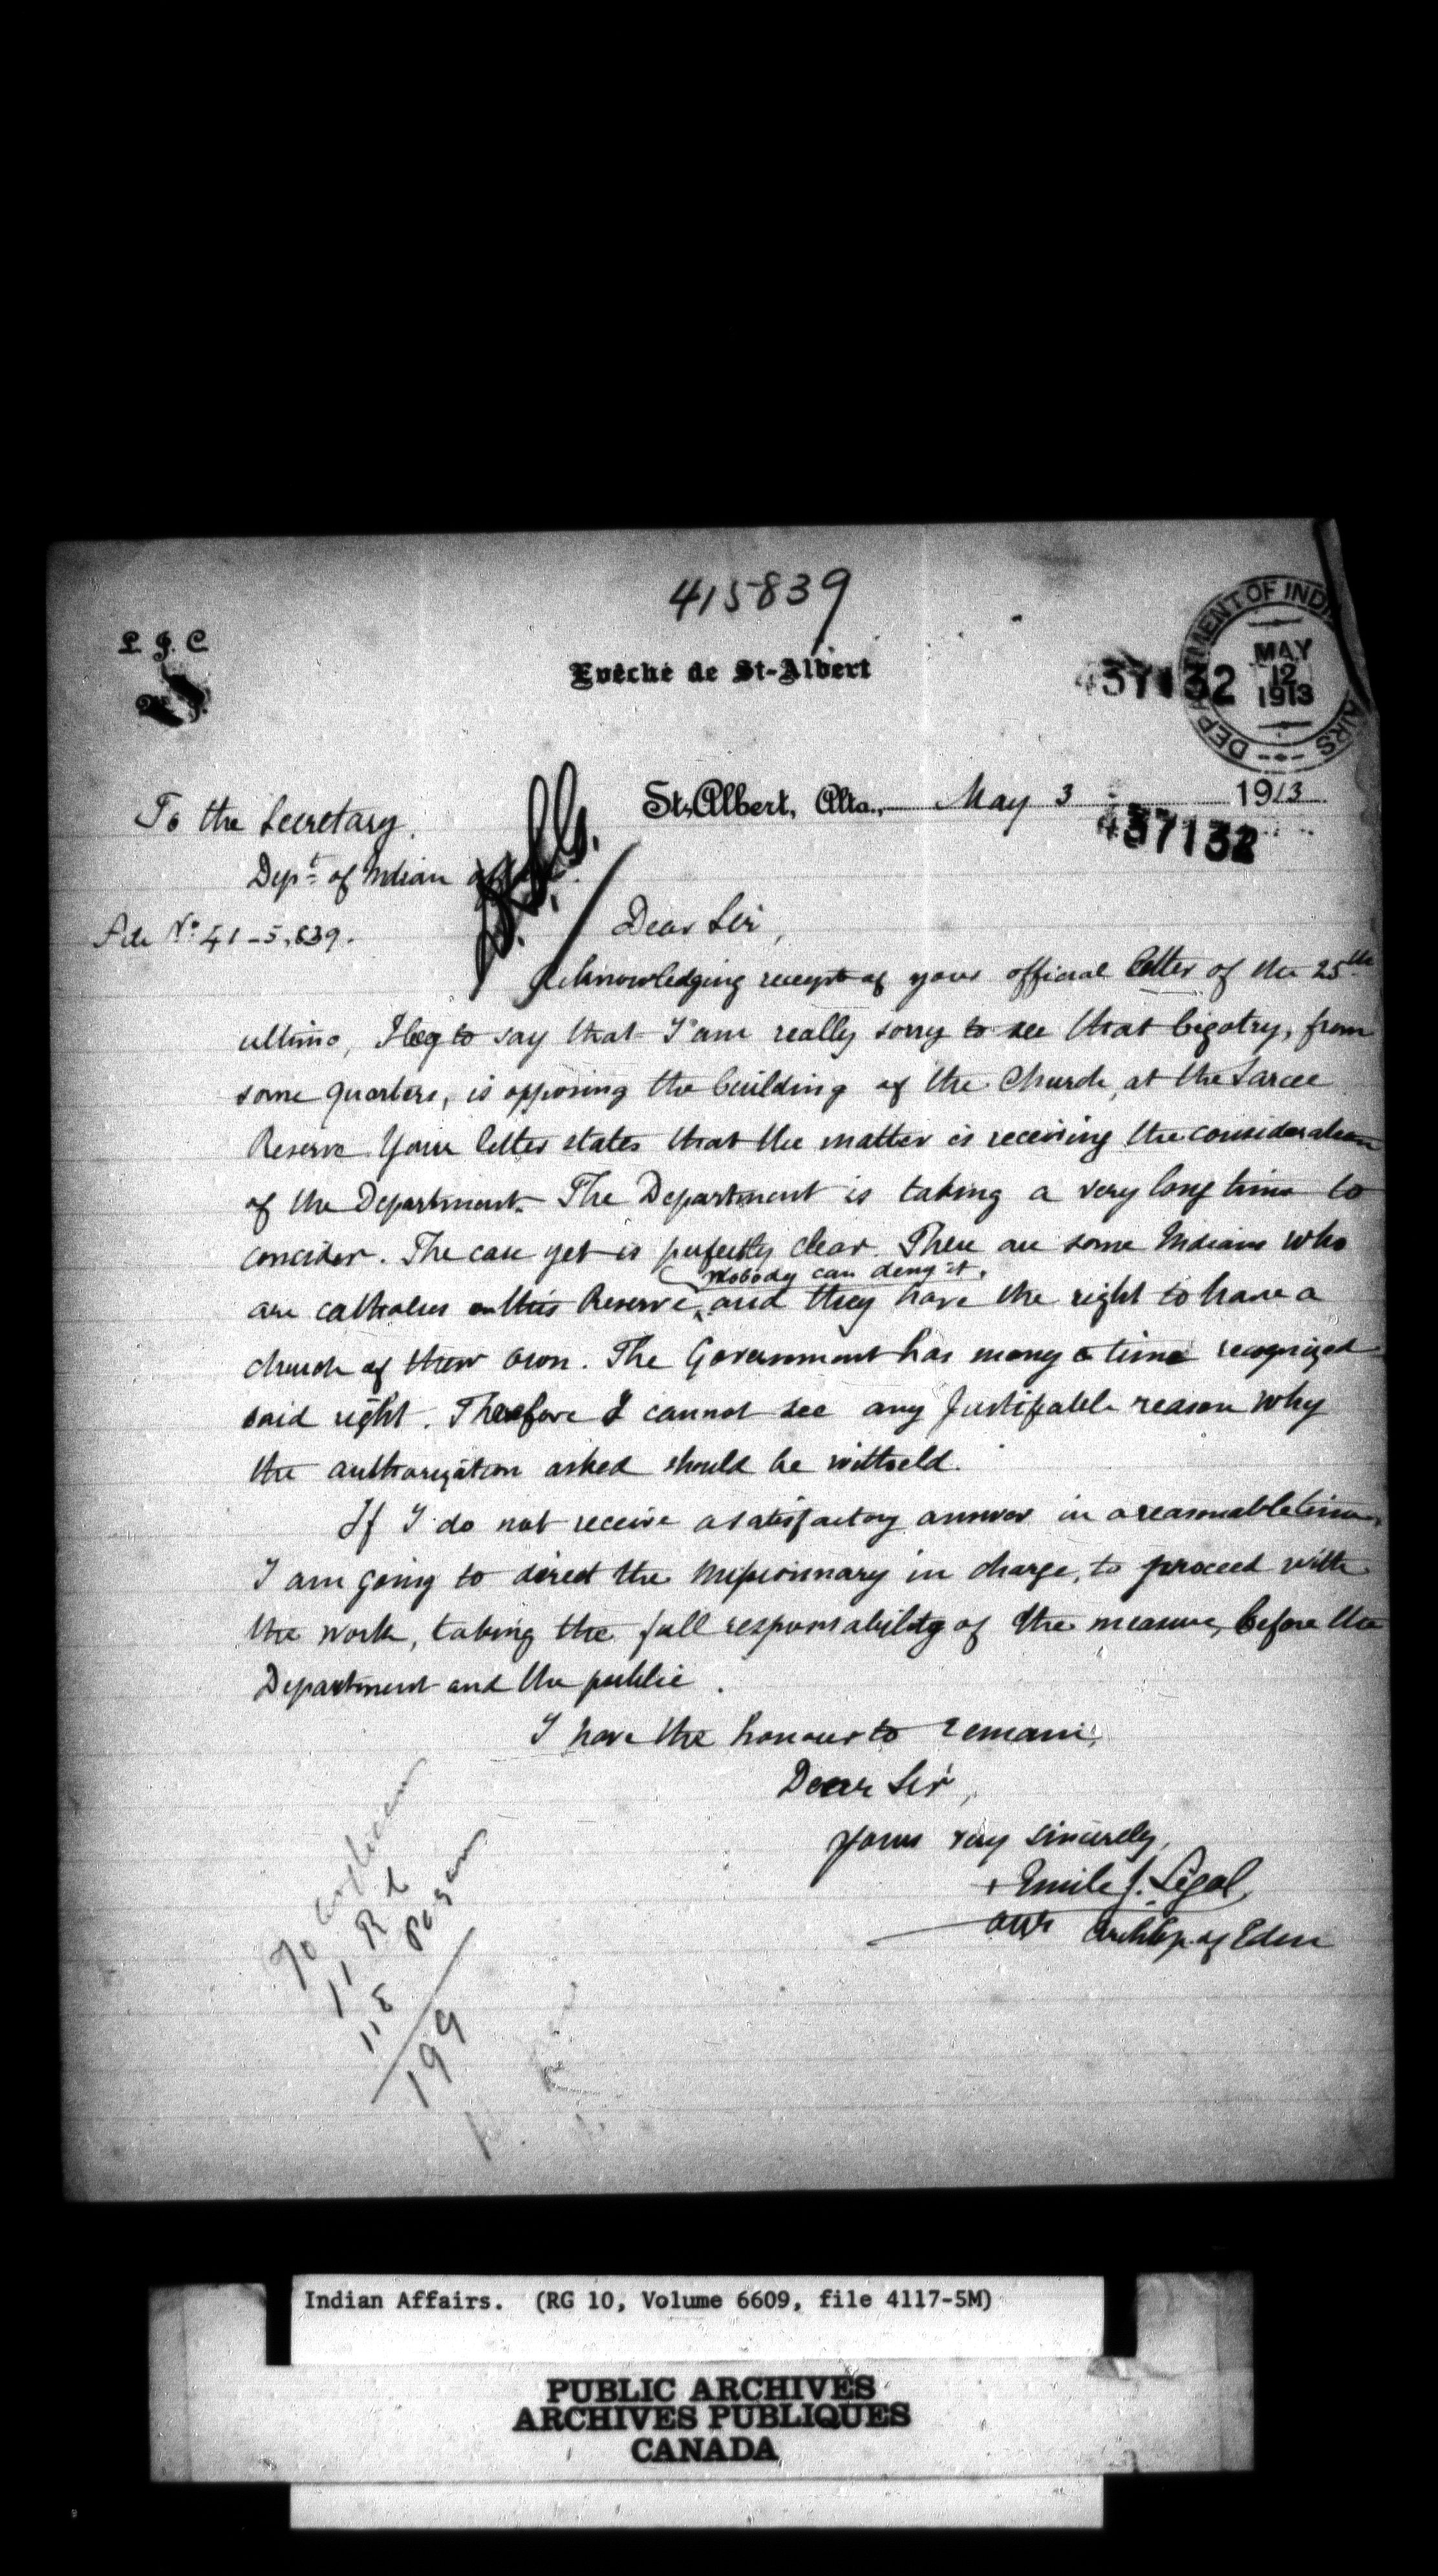 415839
L. J. C.
Evêché de St-Albert
437132
DEPARTMENT OF INDIAN AFFAIRS
MAY
12
1913
St. Albert, Alta., May 3 1913
437132
To the Secretary.
Dept of Indian
File No 41-5,839.
Dear Sir,
Acknowledging receipt of your official letter of the 25th
ultimo, I beg to say that I am really sorry to see that bigotry, from
some quarters, is opposing the building of the Church, at the Sarcee
Reserve. Your letter states that the matter is receiving the consideration
of the Department. The Department is taking a very long time to
consider. The case yet is perfectly clear. There are some Indians who
nobody can deny it,
are catholics on this Reserve, and they have the right to have a
church of their own. The Government has many a time recognized
said right. Therefore I cannot see any justifiable reason why
the authorization asked should be withheld.
If I do not receive a satisfactory answer in a reasonable time,
I am going to direct the missionnary in charge, to proceed with
the work, taking the full responsability of the measure, before the
Department and the public.
I have the honour to remain,
Dear Sir,
Yours very sincerely,
+ Emile J. Legal
OMI Archbp. of Edm
70 Anglican
11 R C
118 Pagan
199
Indian Affairs. (RG 10, Volume 6609, file 4117-5M)
PUBLIC ARCHIVES
ARCHIVES PUBLIQUES
CANADA